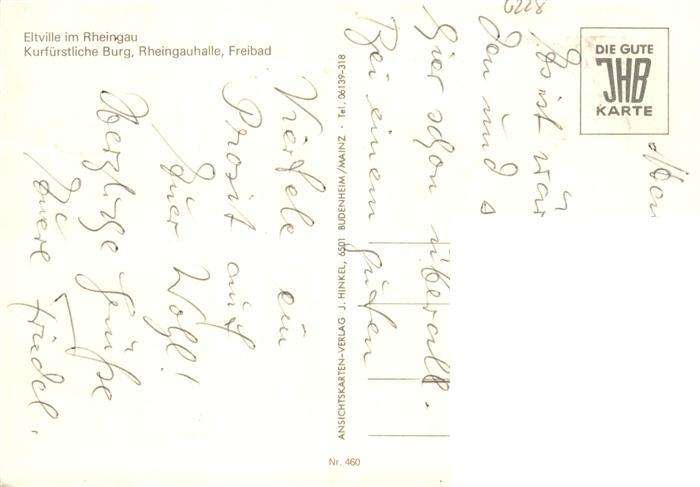 Eltville im Rheingau
Kurfürstliche Burg, Rheingauhalle, Freibad
6228
DIE GUTE
JHB
KARTE
Es ist
den und
hier schon überall.
Bei einem guten
Viertele ein
Prosit auf
Euer Wohl!
Herzliche Grüße
Eure Friedel.
ANSICHTSKARTEN-VERLAG J. HINKEL, 6501 BUDENHEIM/MAINZ · Tel. 06139-318
Nr. 460